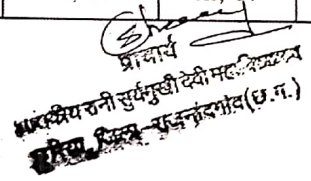 प्राचार्य
शासकीय रानी सुर्यमुखी देवी महाविद्यालय
छुरिया, जिला-राजनांदगांव (छ.ग.)